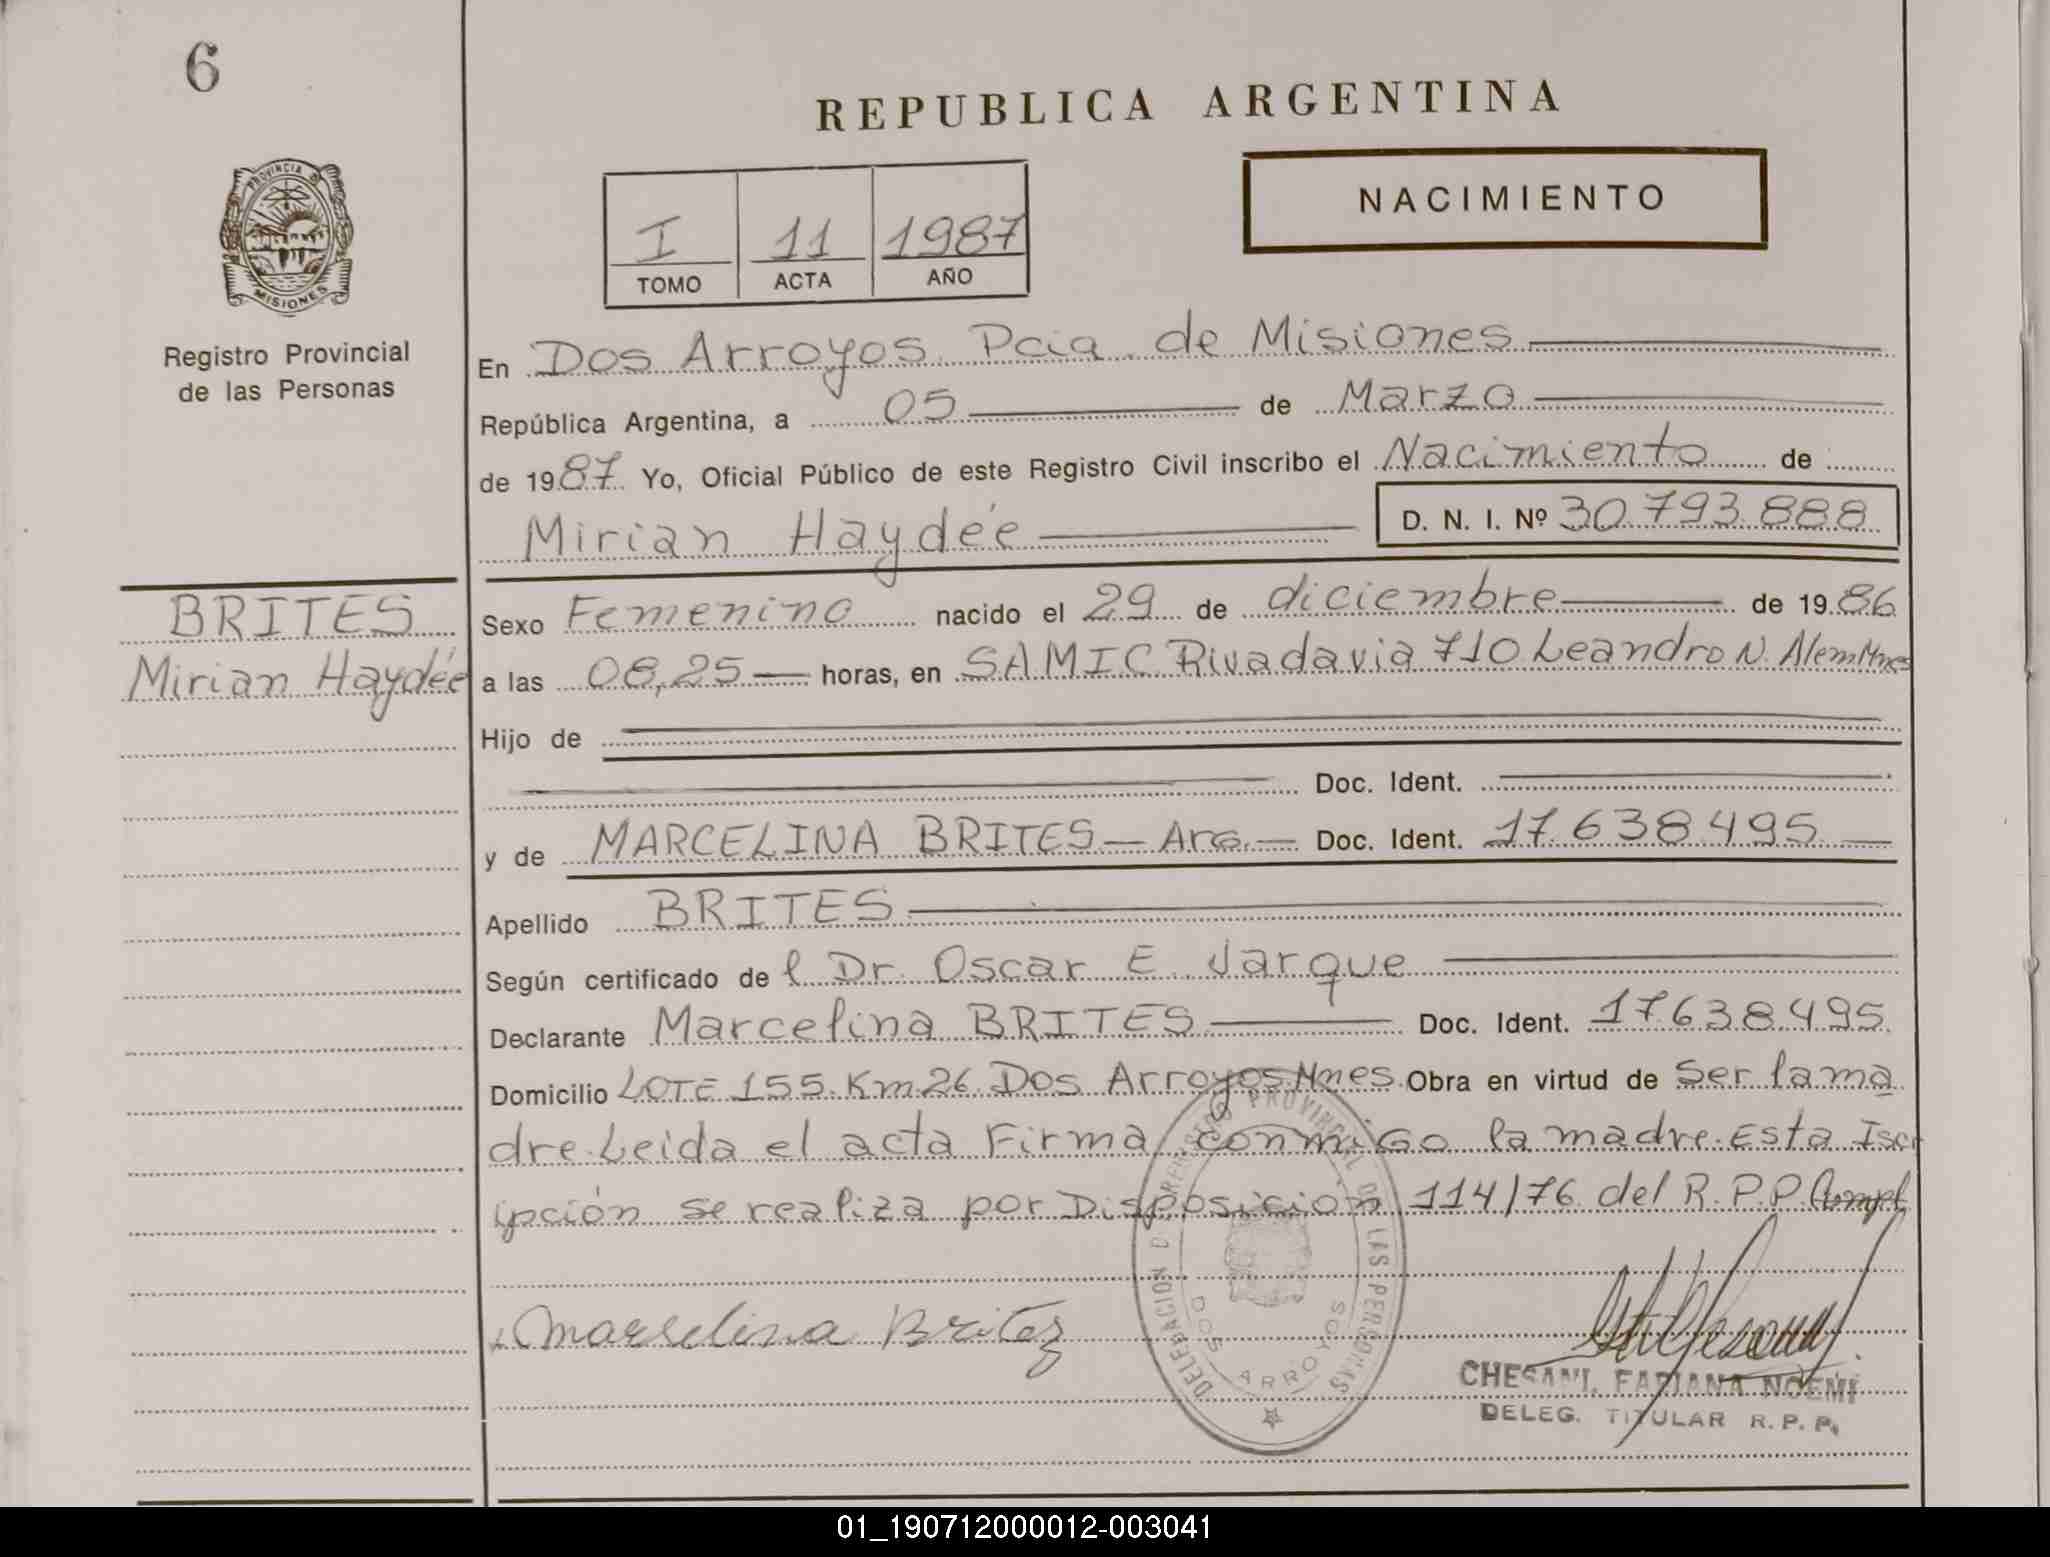 6
REPUBLICA ARGENTINA
NACIMIENTO
I 11 1987
TOMO ACTA AÑO
PROVINCIA D
MISIONES
Registro Provincial
de las Personas
En Dos Arroyos Pcia. de Misiones
República Argentina, a 05 de Marzo
de 1987. Yo, Oficial Público de este Registro Civil inscribo el Nacimiento de
Mirian Haydée D. N. I. Nº 30.793.888
BRITES
Mirian Haydée
Sexo Femenino nacido el 29 de diciembre de 1986
a las 08,25 horas, en SAMIC Rivadavia 710 Leandro N. Alem Mnes
Hijo de
Doc. Ident.
y de MARCELINA BRITES — Arg. — Doc. Ident. 17.638.495
Apellido BRITES
Según certificado de l Dr. Oscar E. Jarque
Declarante Marcelina BRITES Doc. Ident. 17.638.495
Domicilio LOTE 155. Km 26. Dos Arroyos Mnes. Obra en virtud de Ser la ma
dre. Leida el acta Firma conmigo la madre. Esta Iscr
ipción se realiza por Disposicion 114/76 del R.P.P.
Marselina Britez
DELEGACION D REGISTRO PROVINCIAL DE LAS PERSONAS
DOS ARROYOS
CHESANI, FABIANA NOEMI
DELEG. TITULAR R. P. P.
01_190712000012-003041